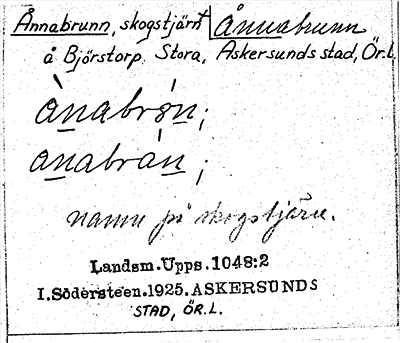 Ånnabrunn, skogstjärn Ånnabrunn
å Björstorp Stora, Askersunds stad, Ör.l.
ànabro̊n;
anabrån;
namn på skogstjärn.
Landsm.Upps.1048:2
I.Södersteen.1925.ASKERSUNDS
STAD, ÖR.L.